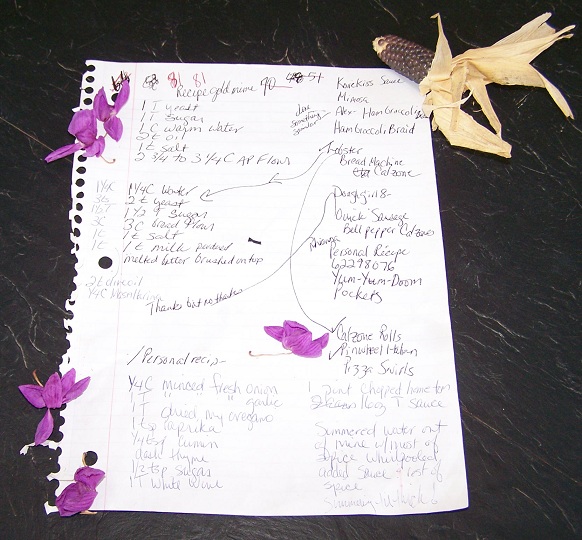 81 81
Recipegoldmine 90
1 T yeast
1 T sugar
1 C warm water
2 t oil
1 t salt
2 3/4 to 3 1/4 C AP Flour
1 1/4 C Water
2 t yeast
1 1/2 T sugar
3 C bread flour
1 t salt
1 t milk powdered
melted butter brushed on top
2 t olive oil
Thanks but no thanks
Personal recip-
1/4 C minced fresh onion
1 T " " garlic
1 T dried my oregano
1 tsp paprika
1/4 tsp cumin
dash thyme
1/2 tsp sugar
1 T white wine
Sauce
Mimosa
Alex- Ham Broccoli
Ham Broccoli Braid
done something similar
Webster
Bread Machine
Calzone
Doughgirl8-
Quick Sausage
Bell pepper Calzones
Personal Recipe
62298076
Yum-Yum-Doom
Pockets
Calzone Rolls
Pinwheel Italian
Pizza Swirls
1 pint chopped home tom
16oz T sauce
Simmered water out
of mine w/ most of
spice whirlpooled
added sauce & rest of
spice